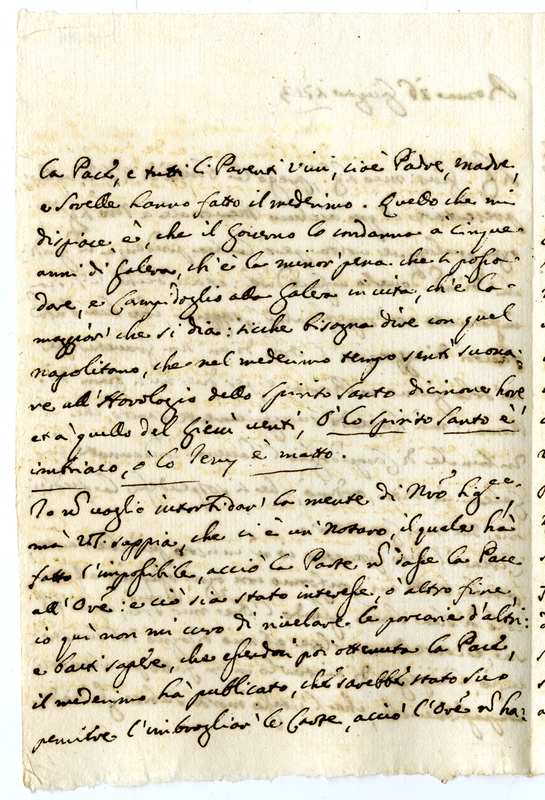 la Pace, e tutti li Parenti vivi, cioè Padre, madre,
e Sorelle hanno fatto il medesimo. Quello che mi
dispiace è, che il Governo lo condanna à cinque
anni di Galera, ch'è la minor pena che si possa
dare, e Campidoglio alla Galera in vita, ch'è la
maggior che si dia: sicche bisogna dire con quel
napolitano, che nel medesimo tempo sentì suona-
re all'Horologio dello Spirito Santo dicinove hore
et à quello del Giesù venti, ò lo Spirito Santo è
imbriaco, ò lo Jesù è matto.
Io nō voglio intorbidar la mente di Nrō Sigre,
mà VS. sappia, che ci è un Notaro, il quale hà
fatto l'impossibile, acciò la Parte nō dasse la Pace
all'Orē: e ciò sia stato interesse, ò altro fine,
io quì non mi curo di rivelare le porcarie d'altri:
e basti sapere, che essendosi poi ottenuta la Pace,
il medesimo hà publicato, che sarebbe stato suo
l'imbrogliar le Carte, acciò l'Orē nō ha-
Roma 26 Giugno 1703